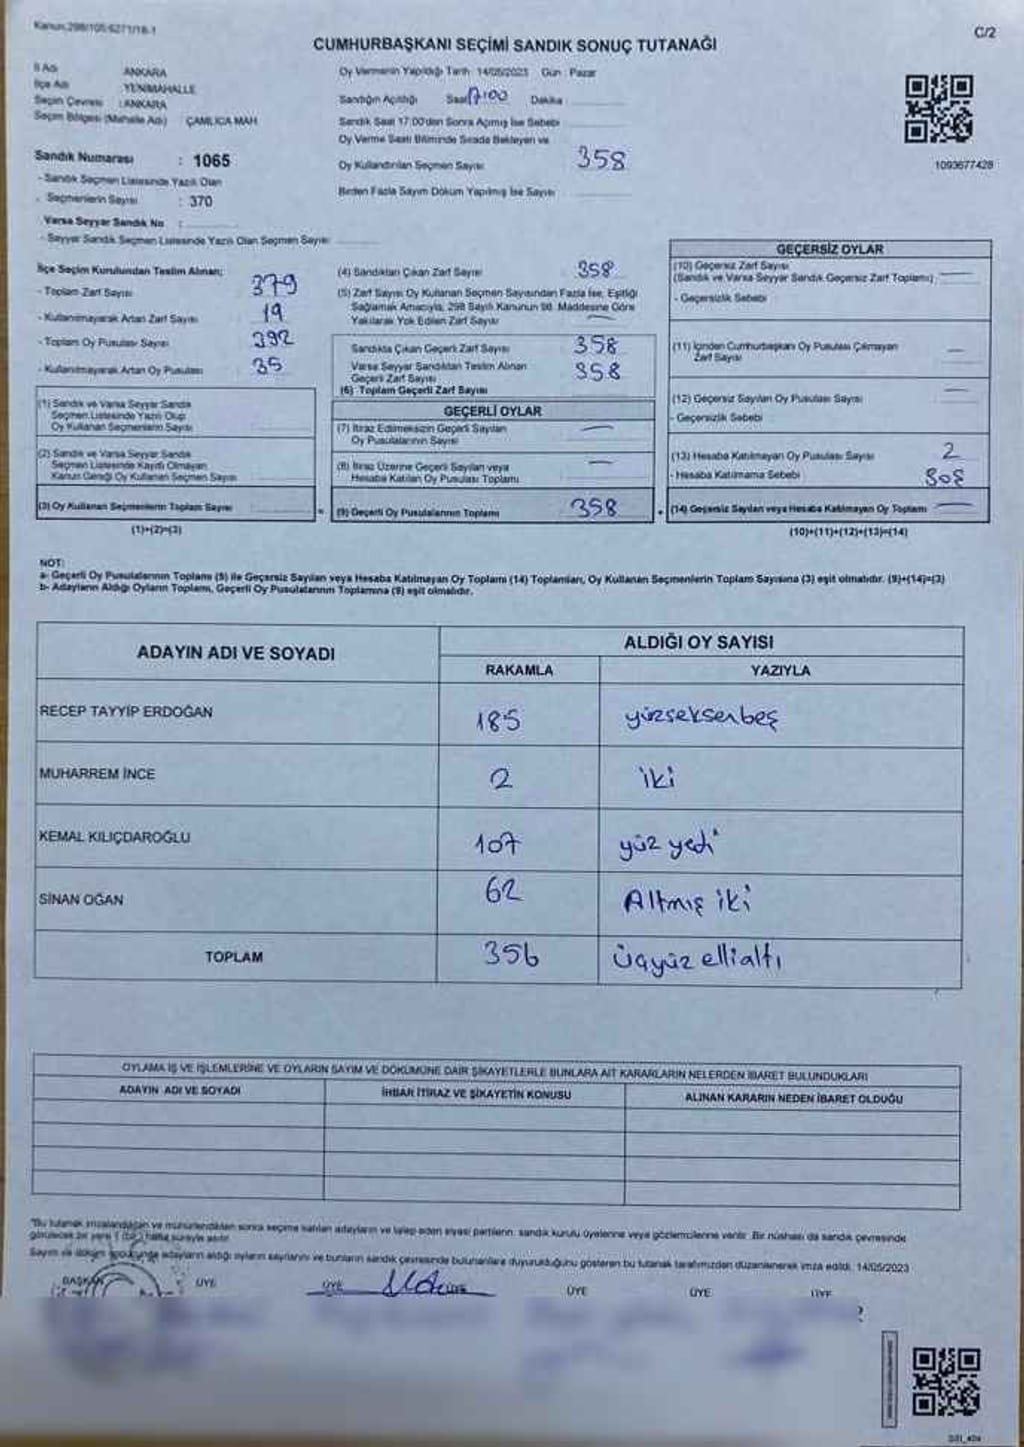 Kanun:298/105:6271/18-1
C/2
CUMHURBAŞKANI SEÇİMİ SANDIK SONUÇ TUTANAĞI
İl Adı ANKARA
İlçe Adı YENİMAHALLE
Seçim Çevresi : ANKARA
Seçim Bölgesi (Mahalle Adı) : ÇAMLICA MAH.
Sandık Numarası : 1065
- Sandık Seçmen Listesinde Yazılı Olan
Seçmenlerin Sayısı : 370
Varsa Seyyar Sandık No :
- Seyyar Sandık Seçmen Listesinde Yazılı Olan Seçmen Sayısı
Oy Vermenin Yapıldığı Tarih : 14/05/2023 Gün : Pazar
Sandığın Açıldığı Saat 17:00 Dakika
Sandık Saat 17:00'den Sonra Açılmış İse Sebebi
Oy Verme Saati Bitiminde Sırada Bekleyen ve
Oy Kullandırılan Seçmen Sayısı 358
Birden Fazla Sayım Döküm Yapılmış İse Sayısı
1093677428
İlçe Seçim Kurulundan Teslim Alınan;
- Toplam Zarf Sayısı 379
- Kullanılmayarak Artan Zarf Sayısı 19
- Toplam Oy Pusulası Sayısı 392
- Kullanılmayarak Artan Oy Pusulası 35
(1) Sandık ve Varsa Seyyar Sandık
Seçmen Listesinde Yazılı Olup
Oy Kullanan Seçmenlerin Sayısı
(2) Sandık ve Varsa Seyyar Sandık
Seçmen Listesinde Kayıtlı Olmayan
Kanun Gereği Oy Kullanan Seçmen Sayısı
(3) Oy Kullanan Seçmenlerin Toplam Sayısı
(1)+(2)=(3)
(4) Sandıktan Çıkan Zarf Sayısı 358
(5) Zarf Sayısı Oy Kullanan Seçmen Sayısından Fazla İse, Eşitliği
Sağlamak Amacıyla, 298 Sayılı Kanunun 98. Maddesine Göre
Yakılarak Yok Edilen Zarf Sayısı
Sandıkta Çıkan Geçerli Zarf Sayısı 358
Varsa Seyyar Sandıktan Teslim Alınan
Geçerli Zarf Sayısı 358
(6) Toplam Geçerli Zarf Sayısı
GEÇERLİ OYLAR
(7) İtiraz Edilmeksizin Geçerli Sayılan
Oy Pusulalarının Sayısı
(8) İtiraz Üzerine Geçerli Sayılan veya
Hesaba Katılan Oy Pusulası Toplamı
(9) Geçerli Oy Pusulalarının Toplamı 358
GEÇERSİZ OYLAR
(10) Geçersiz Zarf Sayısı
(Sandık ve Varsa Seyyar Sandık Geçersiz Zarf Toplamı)
- Geçersizlik Sebebi
(11) İçinden Cumhurbaşkanı Oy Pusulası Çıkmayan
Zarf Sayısı
(12) Geçersiz Sayılan Oy Pusulası Sayısı
- Geçersizlik Sebebi
(13) Hesaba Katılmayan Oy Pusulası Sayısı 2
- Hesaba Katılmama Sebebi
(14) Geçersiz Sayılan veya Hesaba Katılmayan Oy Toplamı
(10)+(11)+(12)+(13)=(14)
NOT:
a- Geçerli Oy Pusulalarının Toplamı (9) ile Geçersiz Sayılan veya Hesaba Katılmayan Oy Toplamı (14) Toplamları, Oy Kullanan Seçmenlerin Toplam Sayısına (3) eşit olmalıdır. (9)+(14)=(3)
b- Adayların Aldığı Oyların Toplamı, Geçerli Oy Pusulalarının Toplamına (9) eşit olmalıdır.
ADAYIN ADI VE SOYADI
ALDIĞI OY SAYISI
RAKAMLA YAZIYLA
RECEP TAYYİP ERDOĞAN 185 yüzseksenbeş
MUHARREM İNCE 2 iki
KEMAL KILIÇDAROĞLU 107 yüz yedi
SİNAN OĞAN 62 Altmış iki
TOPLAM 356 üçyüz ellialtı
OYLAMA İŞ VE İŞLEMLERİNE VE OYLARIN SAYIM VE DÖKÜMÜNE DAİR ŞİKAYETLERLE BUNLARA AİT KARARLARIN NELERDEN İBARET BULUNDUKLARI
ADAYIN ADI VE SOYADI İHBAR İTİRAZ VE ŞİKAYETİN KONUSU ALINAN KARARIN NEDEN İBARET OLDUĞU
*Bu tutanak imzalandıktan ve mühürlendikten sonra seçime katılan adayların ve talep eden siyasi partilerin, sandık kurulu üyelerine veya gözlemcilerine verilir. Bir nüshası da sandık çevresinde
görülecek bir yere 1 (bir) hafta süreyle asılır.
Sayım ve döküm sonucunda adayların aldığı oyların sayılarını ve bunların sandık çevresinde bulunanlara duyurulduğunu gösteren bu tutanak tarafımızdan düzenlenerek imza edildi. 14/05/2023
BAŞKAN ÜYE ÜYE ÜYE ÜYE ÜYE ÜYE